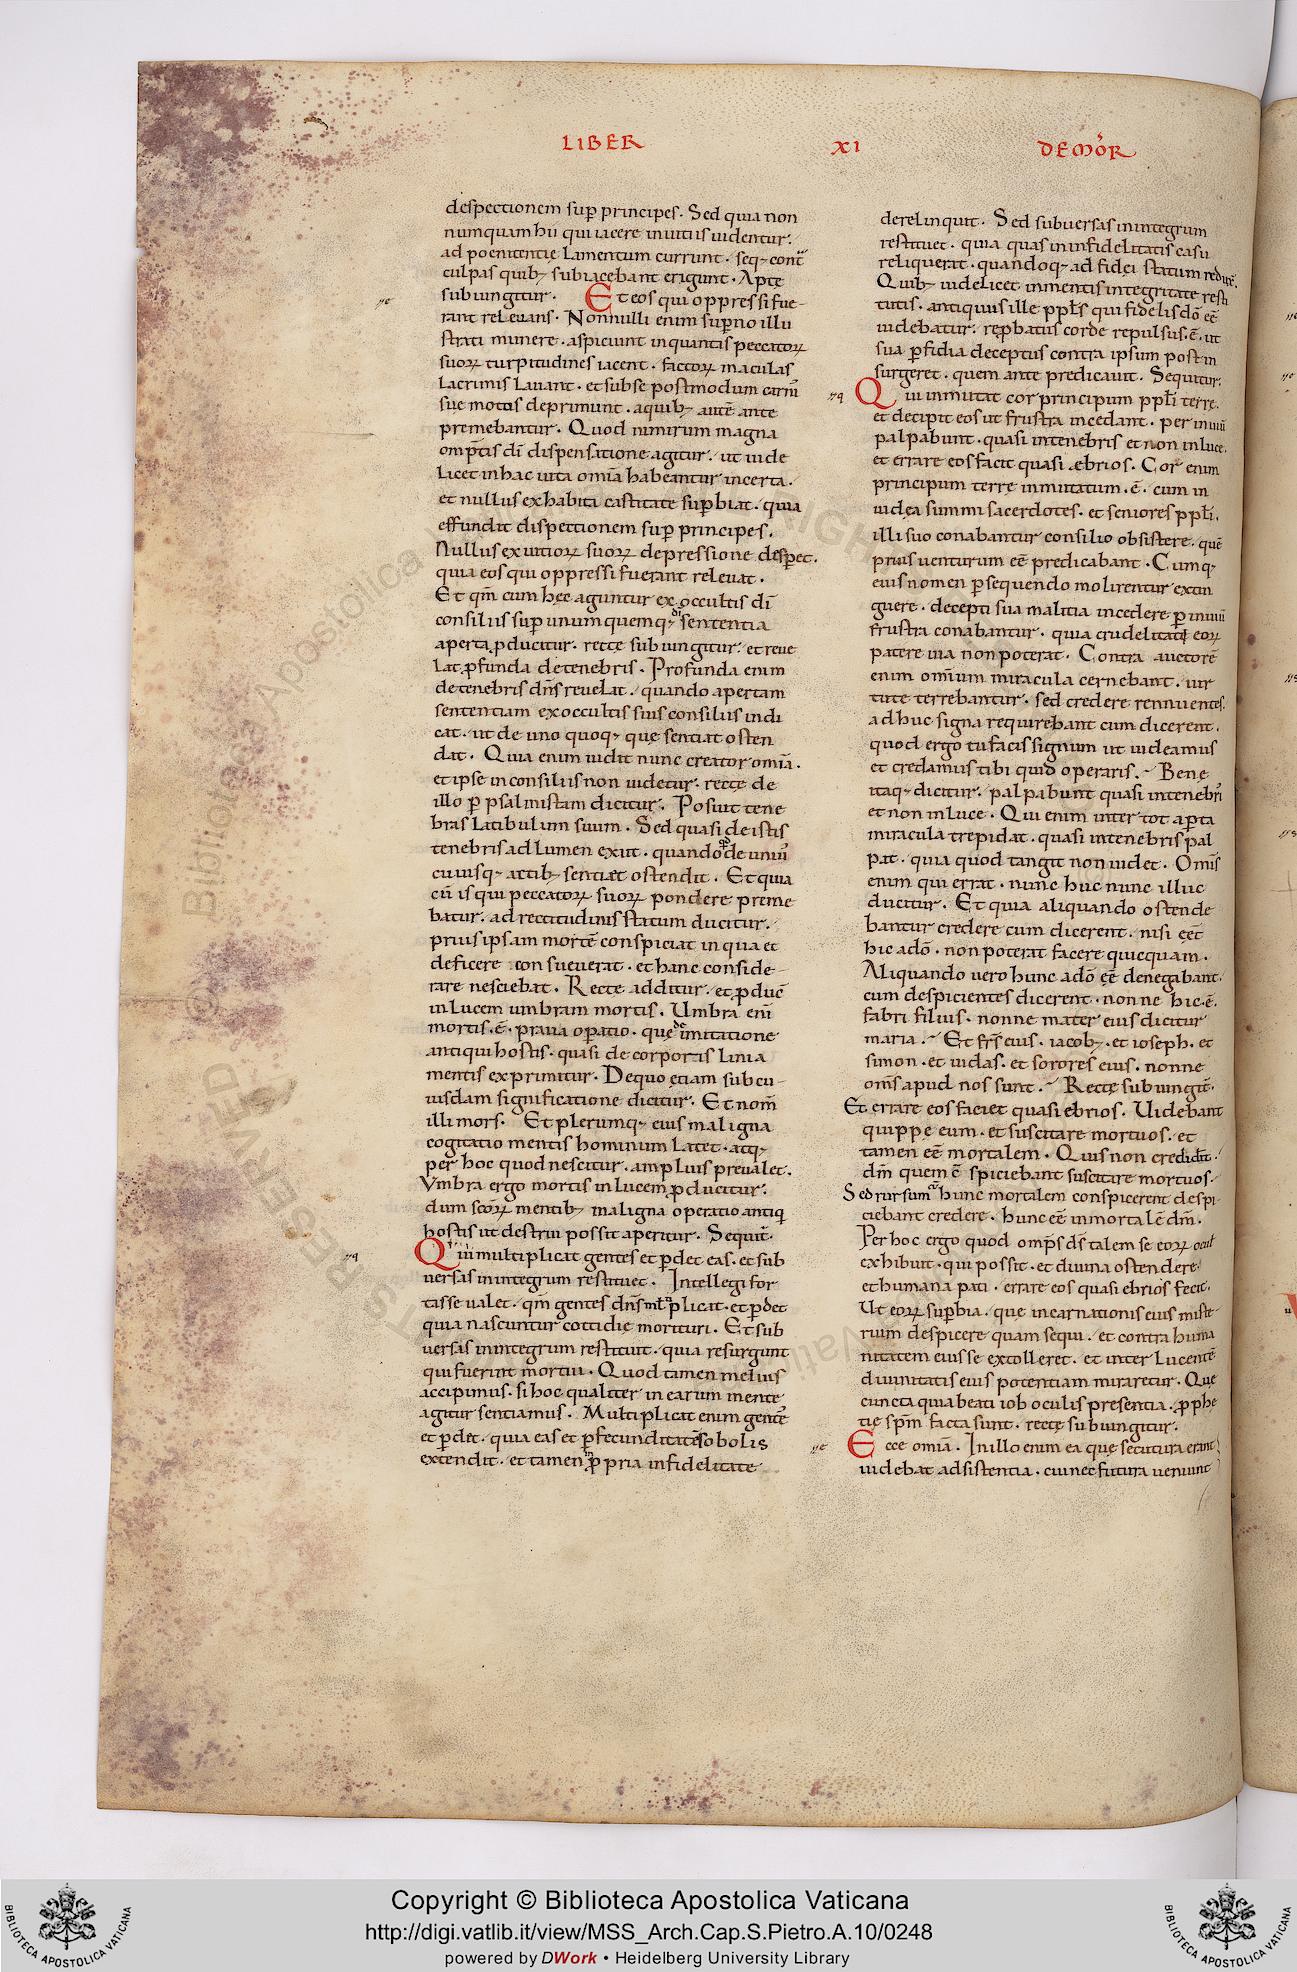 LIBER XI DEMOR̄
despectionem sup̱ principes. Sed quia non
numquam hii qui iacere in uitiis uidentur.
ad poenitentię lamentum currunt. seq; cont̄
culpas quib; subiacebant erigunt. Apte
subiungitur. Et eos qui oppressi fue
rant releuans. Nonnulli enim sup̱no illu
strati munere. aspiciunt in quantis peccatoꝝ
suoꝝ turpitudines iacent. factoꝝ maculas
lacrimis lauant. et sub se postmodum carnis
sue motus deprimunt. a quib; autē ante
premebantur. Quod nimirum magna
omp̄tis dī dispensatione agitur. ut uide
licet in hac uita omīa habeantur incerta.
et nullus ex habita castitate sup̱biat. quia
effundit dispectionem sup̱ principes.
Nullus ex uitioꝝ suoꝝ depressione despec.
quia eos qui oppressi fuerant releuat.
Et qm̄ cum hęc aguntur ex occultis dī
consiliis sup̱ unum quemq; dī sententia
aperta ꝓducitur. recte subiungitur. et reue
lat ꝓfunda de tenebris. Profunda enim
de tenebris dn̄s reuelat. quando apertam
sententiam ex occultis suis consiliis indi
cat. ut de uno quoq; quę sentiat osten
dat. Quia enim uidit nunc creator omīa.
et ipse in consiliis non uidetur. recte de
illo p̱ psalmistam dicitur. Posuit tene
bras latibulum suum. Sed quasi de istis
tenebris ad lumen exiit. quando qd̄ de uniu
cuiusq; actib; sentiat ostendit. Et quia
cū is qui peccatoꝝ suoꝝ pondere preme
batur. ad rectitudinis statum ducitur.
prius ipsam mortē conspiciat in qua et
deficere consueuerat. et hanc conside
rare nesciebat. Recte additur. et ꝓduc̄
in lucem umbram mortis. Umbra enī
mortis. ē. praua op̱atio. quę de imitatione
antiqui hostis. quasi de corporis linia
mentis exprimitur. De quo etiam sub cu
iusdam significatione dicitur. Et nom̄
illi mors. Et plerumq; eius maligna
cogitatio mentis hominum latet. atq;
per hoc quod nescitur. amplius preualet.
Vmbra ergo mortis in lucem ꝓducitur.
dum sc̄oꝝ mentib; maligna operatio antiqi
hostis ut destrui possit aperitur. Sequit̄.
Qui multiplicat gentes et p̱det eas. et sub
uersas in integrum restituet. Intellegi for
tasse ualet. qm̄ gentes dn̄s mltiplicat. et p̱det
quia nascuntur cottidie morituri. Et sub
uersas in integrum restituit. quia resurgunt
qui fuerint mortui. Quod tamen melius
accipimus. si hoc qualiter in earum mente
agitur sentiamus. Multiplicat enim gentē
et p̱det. quia eas et p̱ fecunditatē sobolis
extendit. et tamen in ꝓpria infidelitate
derelinquit. Sed subuersas in integrum
restituet. quia quas in infidelitatis casu
reliquerat. quandoq; ad fidei statum reducē.
Quib; uidelicet in mentis integritate resti
tutis. antiquus ille ppl̄s qui fidelis dō eē
uidebatur. rep̱batus corde repulsus. ē. ut
sua p̱fidia deceptus contra ipsum post in
surgeret. quem ante predicauit. Sequitur.
Qui inmutat cor principum ppl̄i terrę.
et decipit eos ut frustra incedant. per inuiū
palpabunt. quasi in tenebris et non in luce.
et errare eos facit quasi ebrios. Cor enim
principum terrę inmutatum. ē. cum in
iudęa summi sacerdotes. et seniores ppl̄i.
illi suo conabantur consilio obsistere. quē
prius uenturum eē predicabant. Cumq;
eius nomen p̱sequendo molirentur extin
guere. decepti sua malitia incedere p̱ inuiū
frustra conabantur. quia crudelitati eoꝝ
patere uia non poterat. Contra auctorē
enim omīum miracula cernebant. uir
tute terrebantur. sed credere rennuentes.
adhuc signa requirebant cum dicerent.
quod ergo tu facis signum ut uideamus
et credamus tibi quid operaris. Bene
itaq; dicitur. palpabunt quasi in tenebris
et non in luce. Qui enim inter tot ap̱ta
miracula trepidat. quasi in tenebris pal
pat. quia quod tangit non uidet. Omīs
enim qui errat. nunc huc nunc illuc
ducitur. Et quia aliquando ostende
bantur credere cum dicerent. nisi eēt
hic a dō. non poterat facere quicquam.
Aliquando uero hunc a dō eē denegabant.
cum despicientes dicerent. nonne hic. ē.
fabri filius. nonne mater eius dicitur
maria. Et frs̄ eius. iacob;. et ioseph. et
simon. et iudas. et sorores eius. nonne
oms̄ apud nos sunt. Recte subiungit̄.
Et errare eos faciet quasi ebrios. Uidebant
quippe eum. et suscitare mortuos. et
tamen eē mortalem. Quis non credidit.
dm̄ quem cspiciebant suscitare mortuos.
Sed rursum hunc mortalem conspicerent despi
ciebant credere. hunc eē inmortalē dm̄.
Per hoc ergo quod omp̄s ds̄ talem se eoꝝ oculis
exhibuit. qui possit. et diuina ostendere
et humana pati. errare eos quasi ebrios fecit.
Ut eoꝝ sup̱bia. quę incarnationis eius miste
rium despicere quam sequi. et contra huma
nitatem eius se extolleret. et inter lucentē
diuinitatis eius potentiam miraretur. Quę
cuncta quia beati iob oculis presentia. p̱ ꝓphe
tię spm̄ facta sunt. recte subiungitur.
Ecce omīa. In illo enim ea quę secutura erant
uidebat adsistentia. cui nec futura ueniunt
Copyright © Biblioteca Apostolica Vaticana
http://digi.vatlib.it/view/MSS_Arch.Cap.S.Pietro.A.10/0248
powered by DWork • Heidelberg University Library